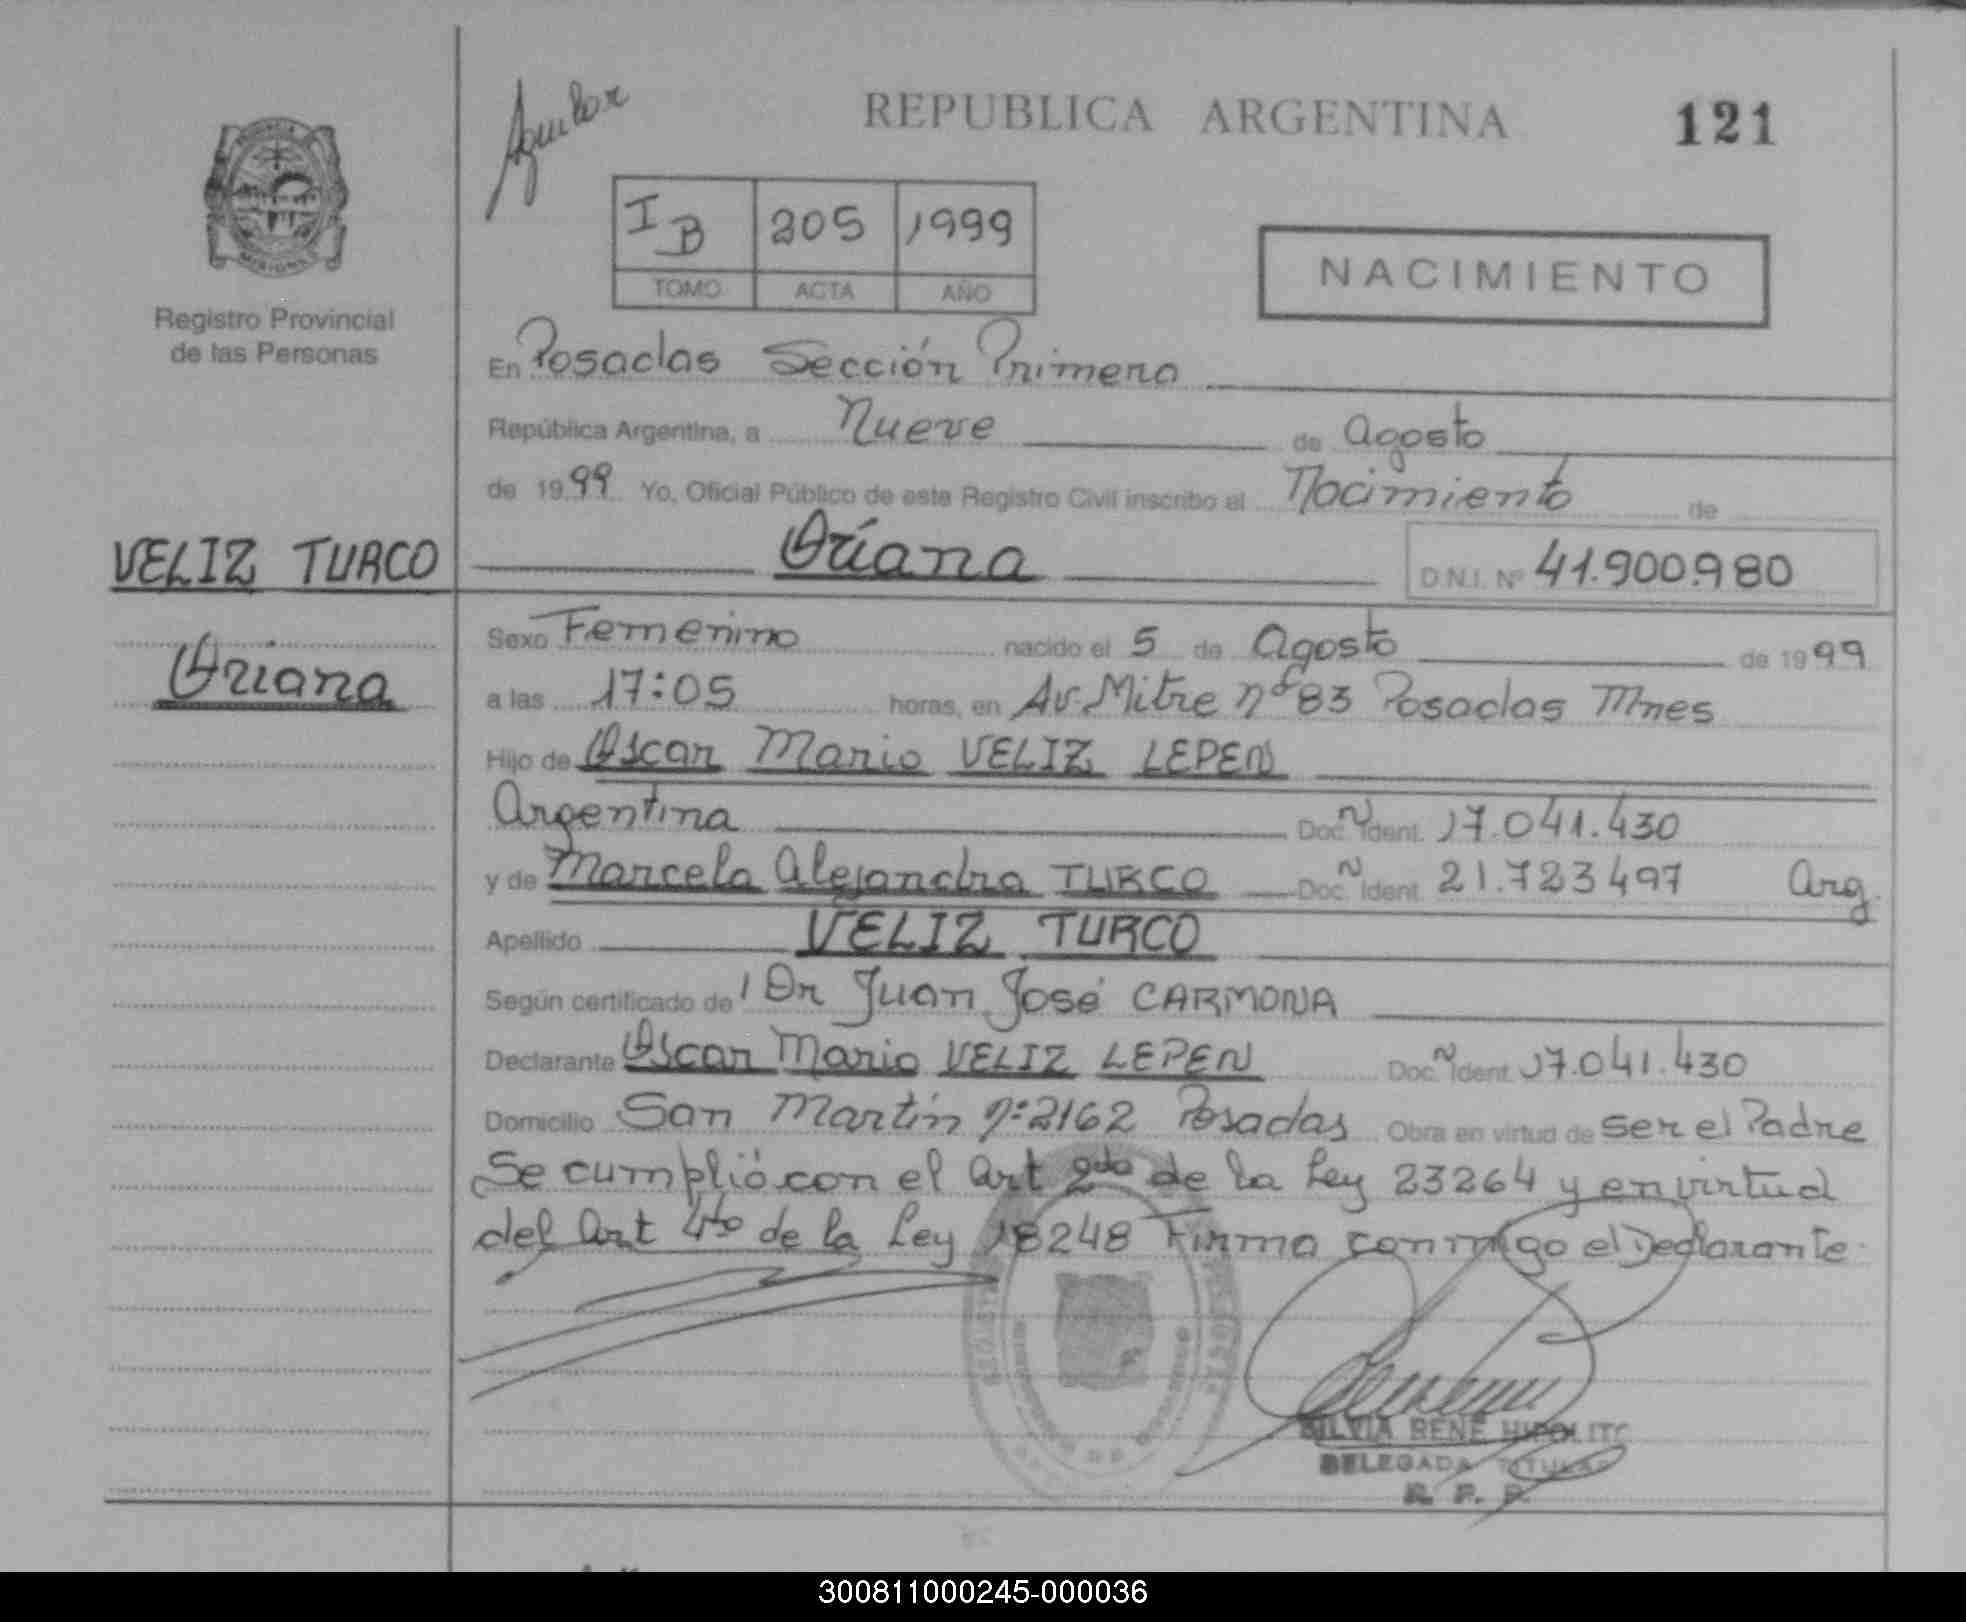 Aguilar
REPUBLICA ARGENTINA 121
I B 205 1999
TOMO ACTA AÑO
NACIMIENTO
MISIONES
Registro Provincial
de las Personas
En Posadas Sección Primera
República Argentina, a Nueve de Agosto
de 1999 Yo, Oficial Público de este Registro Civil inscribo el Nacimiento de
VELIZ TURCO
Oriana
Oriana D.N.I. Nº 41.900.980
Sexo Femenino nacido el 5 de Agosto de 1999
a las 17:05 horas, en Av. Mitre nº 83 Posadas Mnes
Hijo de Oscar Mario VELIZ LEPEN
Argentina Doc. Ident. 17.041.430
y de Marcela Alejandra TURCO Doc. Ident. 21.723497 Arg.
Apellido VELIZ TURCO
Según certificado de Dr Juan José CARMONA
Declarante Oscar Mario VELIZ LEPEN Doc. Ident. 17.041.430
Domicilio San Martín nº 2162 Posadas Obra en virtud de ser el Padre
Se cumplió con el art 2do de la Ley 23264 y en virtud
del art 4to de la Ley 18248 Firma conmigo el Declarante.
SILVIA RENE HIPOLITO
DELEGADA TITULAR
R. P. P.
300811000245-000036